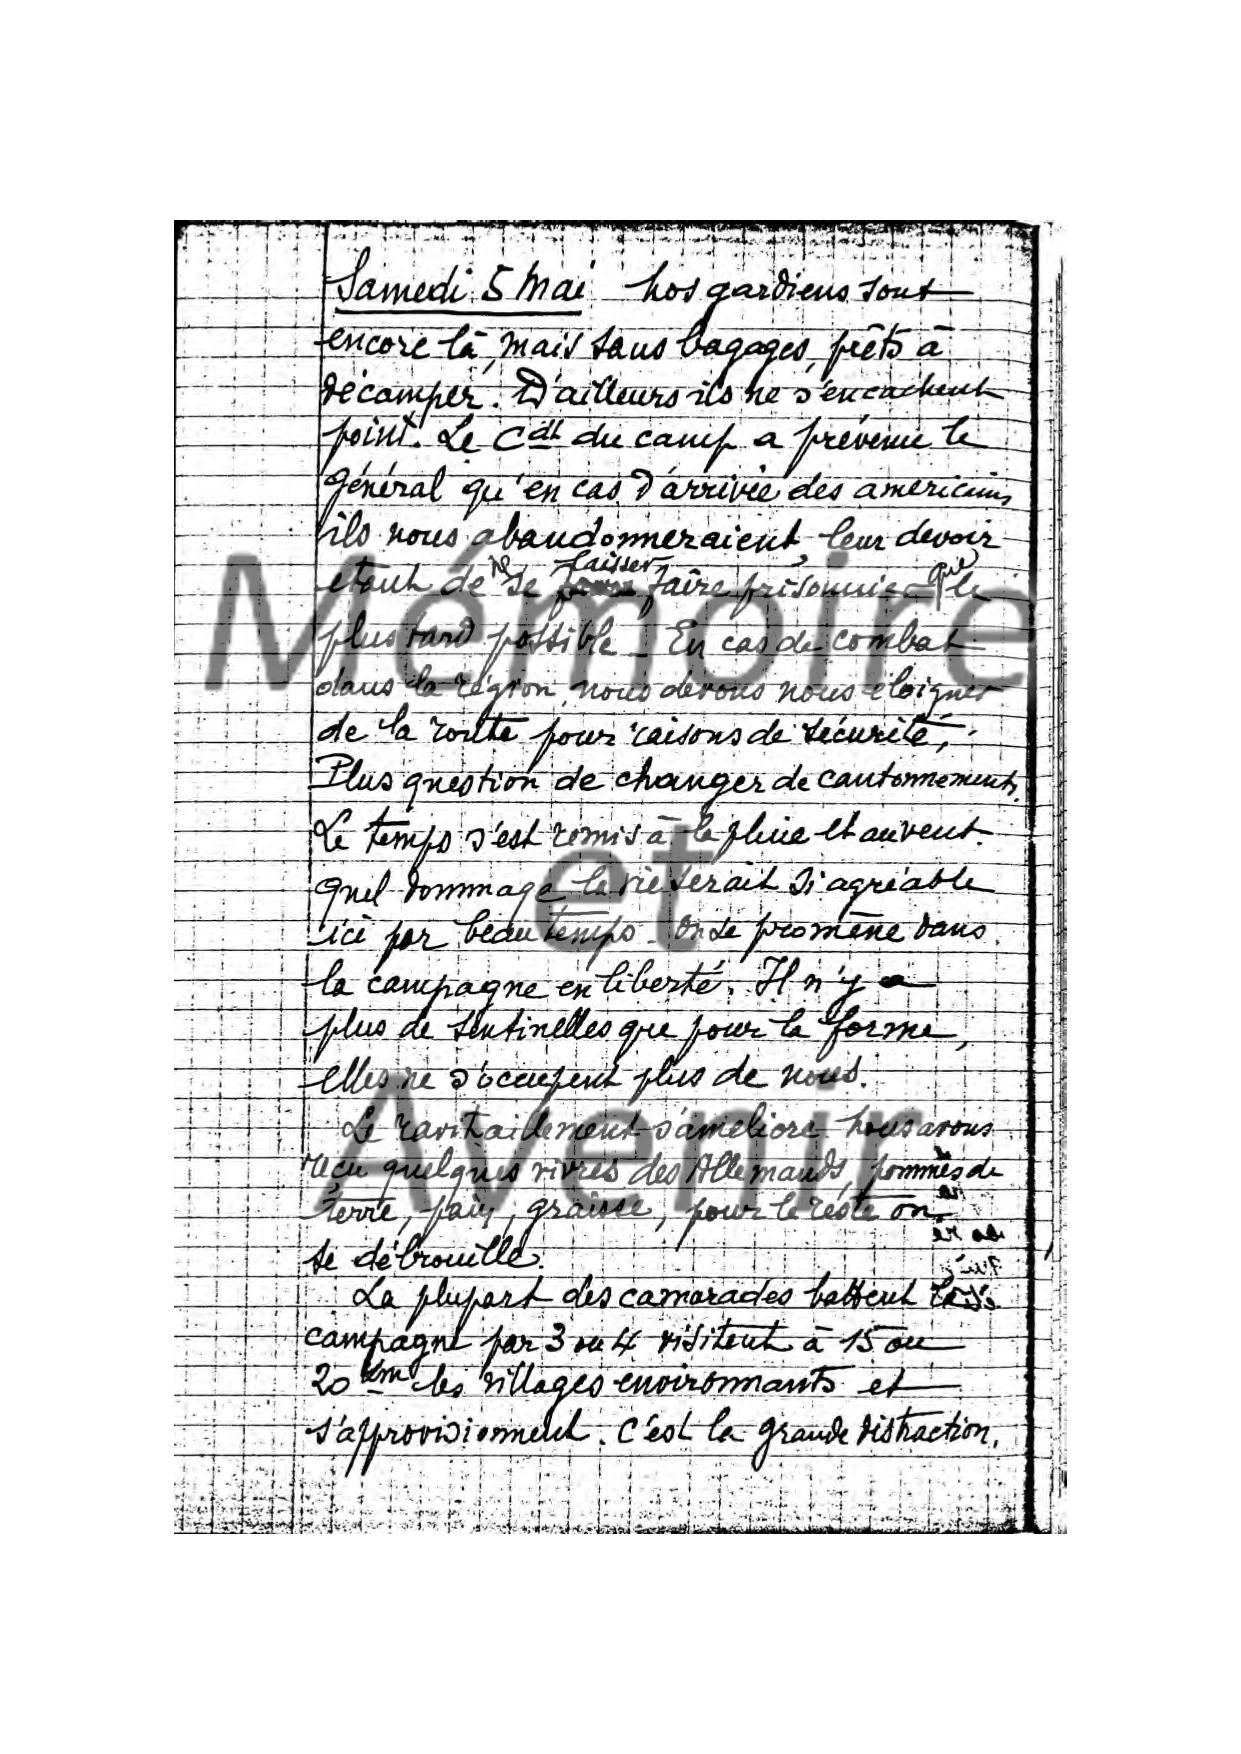 Samedi 5 Mai nos gardiens sont
encore là, mais sans bagages, prêts à
décamper. D'ailleurs ils ne s'en cachent
point. Le Cdt du camp a prévenu le
Général qu'en cas d'arrivée des americains
ils nous abandonneraient, leur devoir
etant de ne se laisser faire prisonnier que le
plus tard possible. En cas de combat
dans la région, nous devons nous éloigner
de la route pour raisons de sécurité.
Plus question de changer de cantonnements.
Le temps s'est remis à la pluie et au vent.
Quel dommage la vie serait si agréable
ici par beau temps. On se promène dans
la campagne en liberté. Il n'y a
plus de sentinelles que pour la forme,
elles ne s'occupent plus de nous.
Le ravitaillement s'améliore nous avons
reçu quelques vivres des Allemands, pommes de
terre, pain, graisse, pour le reste on
se débrouille.
La plupart des camarades battent la
campagne par 3 ou 4 visitent à 15 ou
20 km les villages environnants et
s'approvisionnent. C'est la grande distraction.
Mémoire
et
Avenir